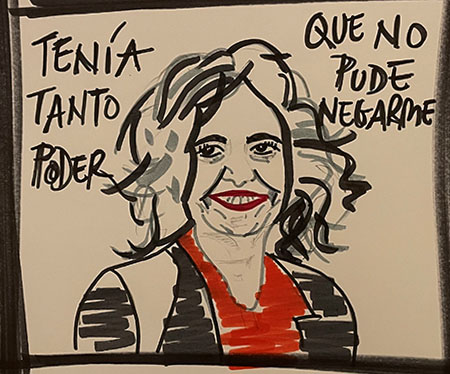 TENÍA
TANTO
PODER
QUE NO
PUDE
NEGARME